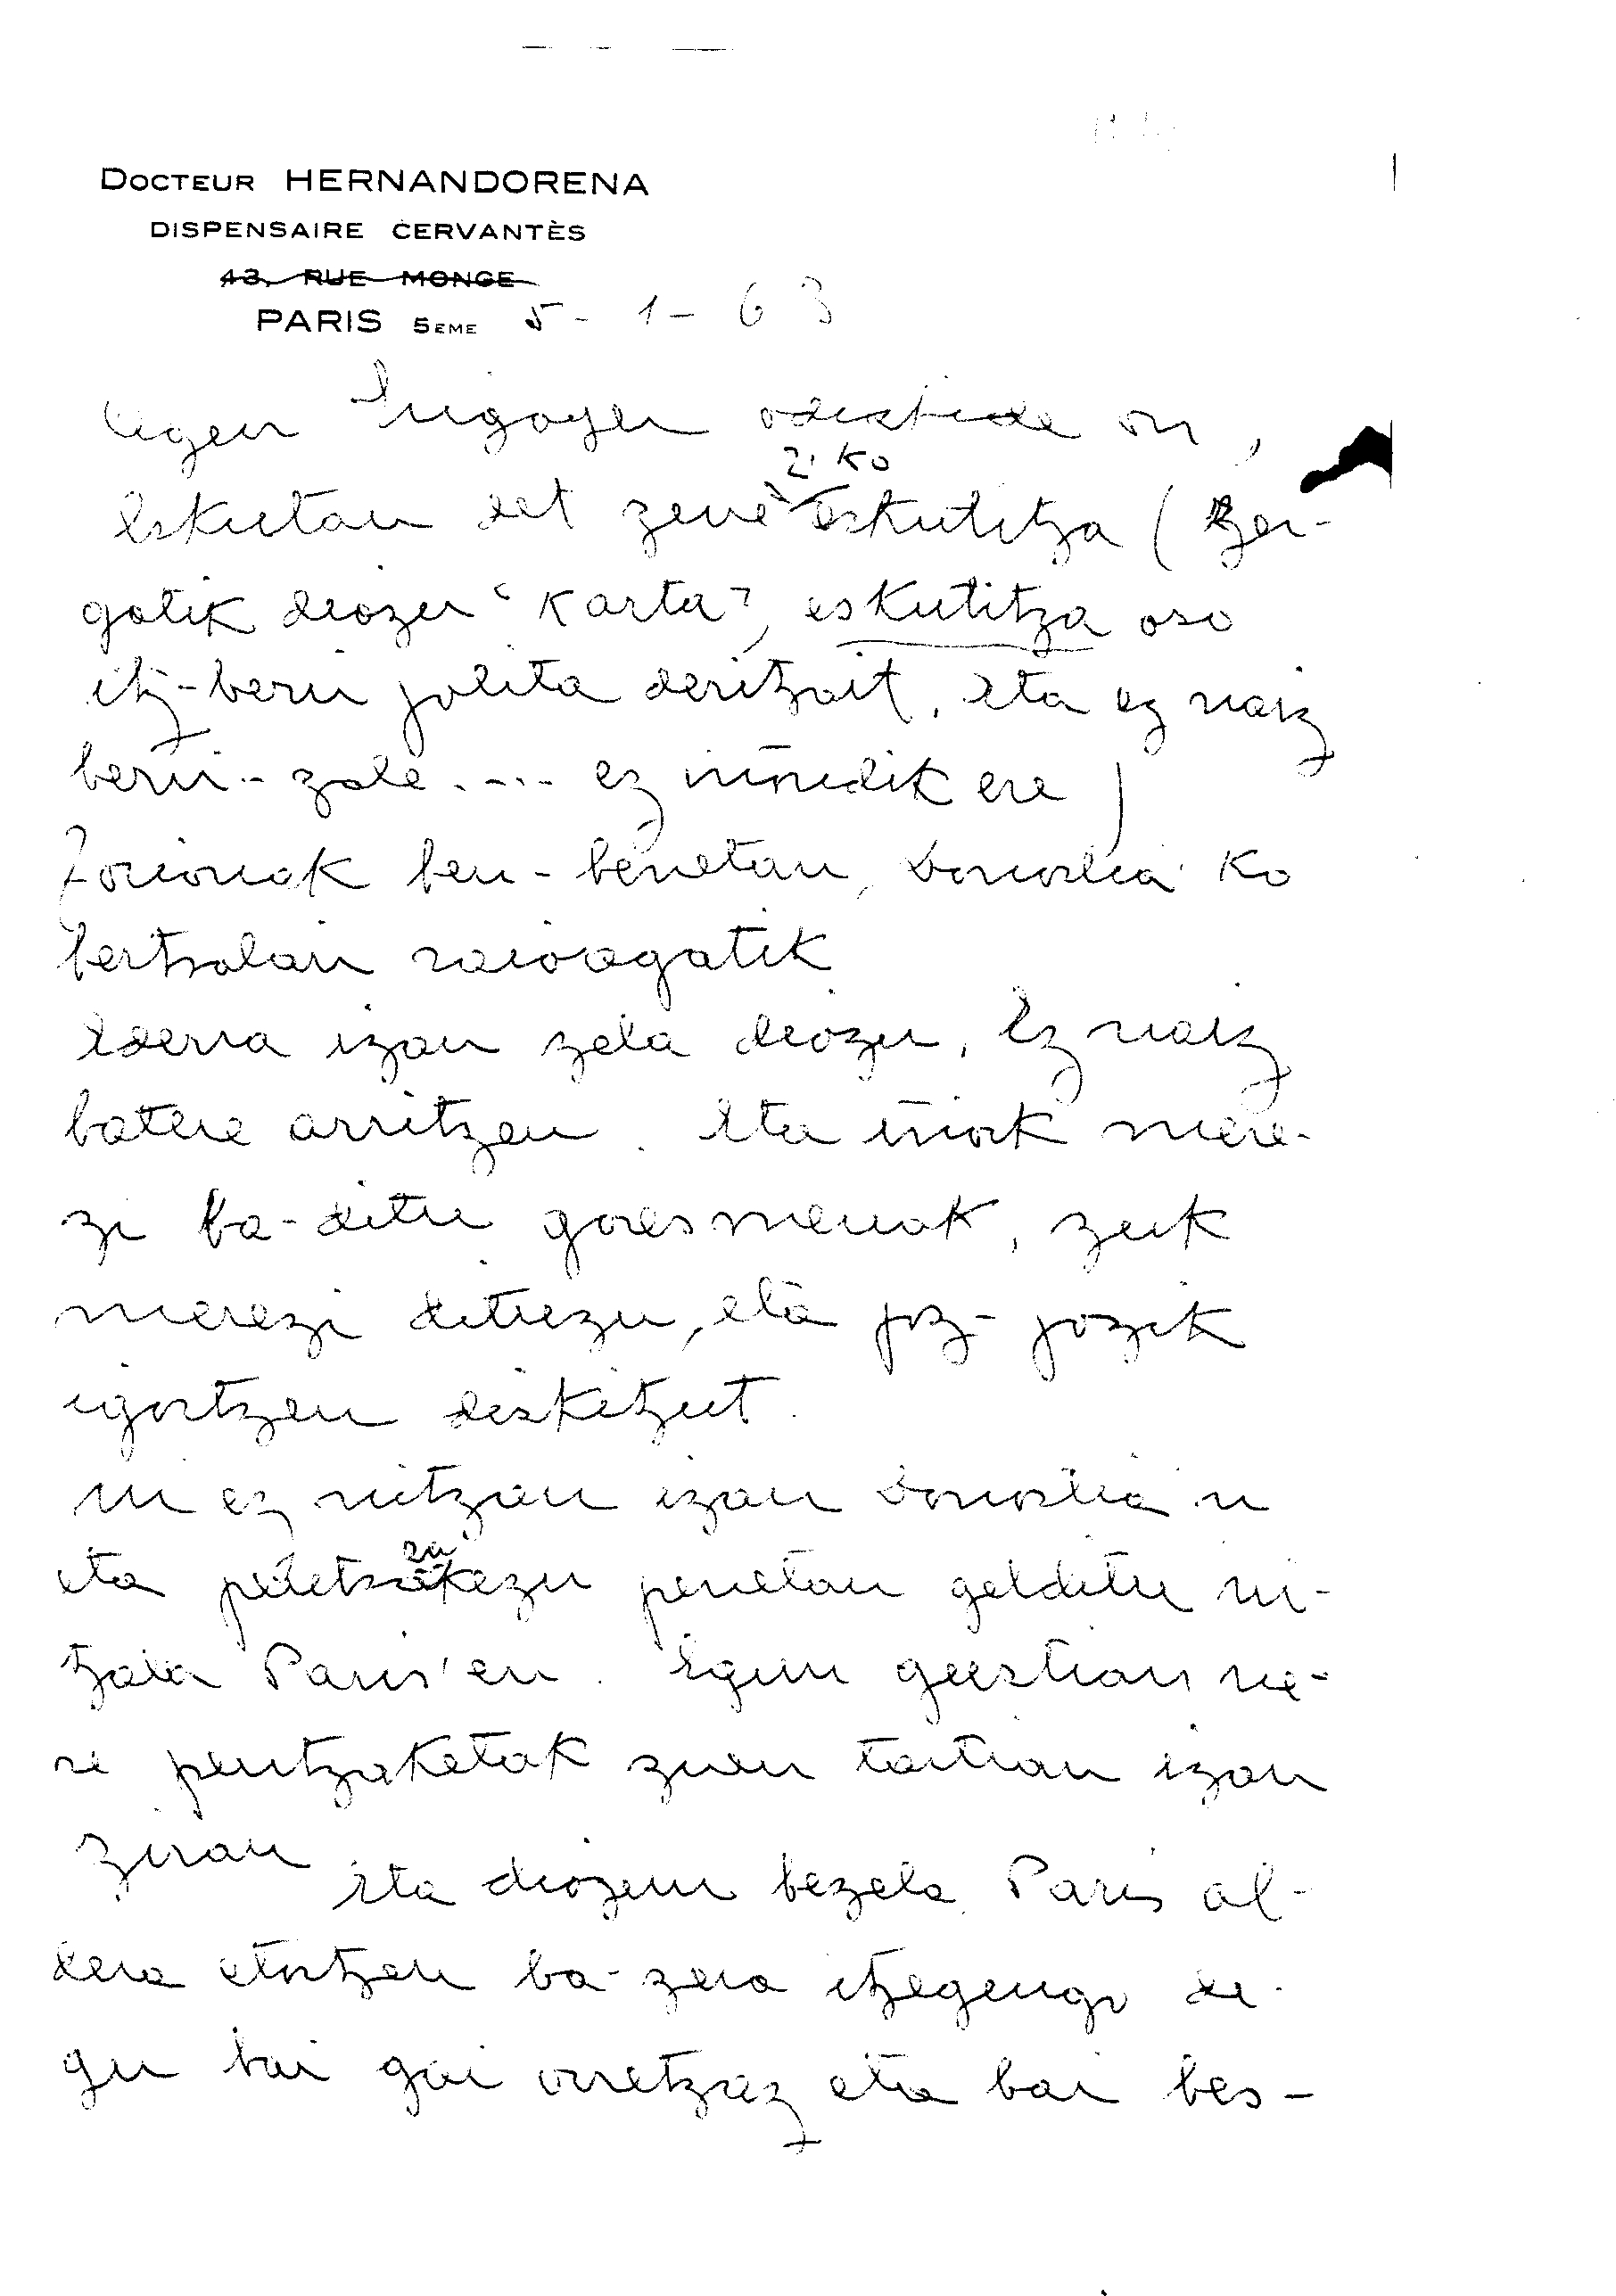 DOCTEUR HERNANDORENA
DISPENSAIRE CERVANTÈS
43, RUE MONGE
PARIS 5EME 5-1-63
Irigoyen adiskide on,
2'ko
Eskutan det zure eskutitza (Zer-
gatik diozu "karta", eskutitza oso
itz-berri polita deritzait, eta ez naiz
berri-zale .... ez iñundik ere)
Zorionak ben-benetan, Donostia'ko
bertsolari saioagatik
Ederra izan zela diozu, Ez naiz
batere arritzen. Eta iñork mere-
zi ba-ditu goresmenak, zuk
merezi dituzu, eta poz-pozik
igortzen dizkitzut.
Ni ez nitzan izan Donostia'n
eta penetan gelditu ni-
tzala Paris'en. Egun guztian ne-
re pentzaketak zuen tartian izan
ziran
Eta diozun bezela Paris al-
dera etortzen ba-zera itzegingo de-
gu bai gai orretzaz eta bai bes-